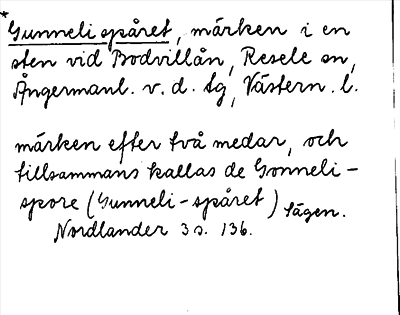 *Gunnelispåret, märken i en
sten vid Bodvillån, Resele sn,
Ångermanl. v. d. tg, Västern. l.
märken efter två medar, och
tillsammans kallas de Gonneli-
spore (Gunneli-spåret) Sägen.
Nordlander 3 s. 136.